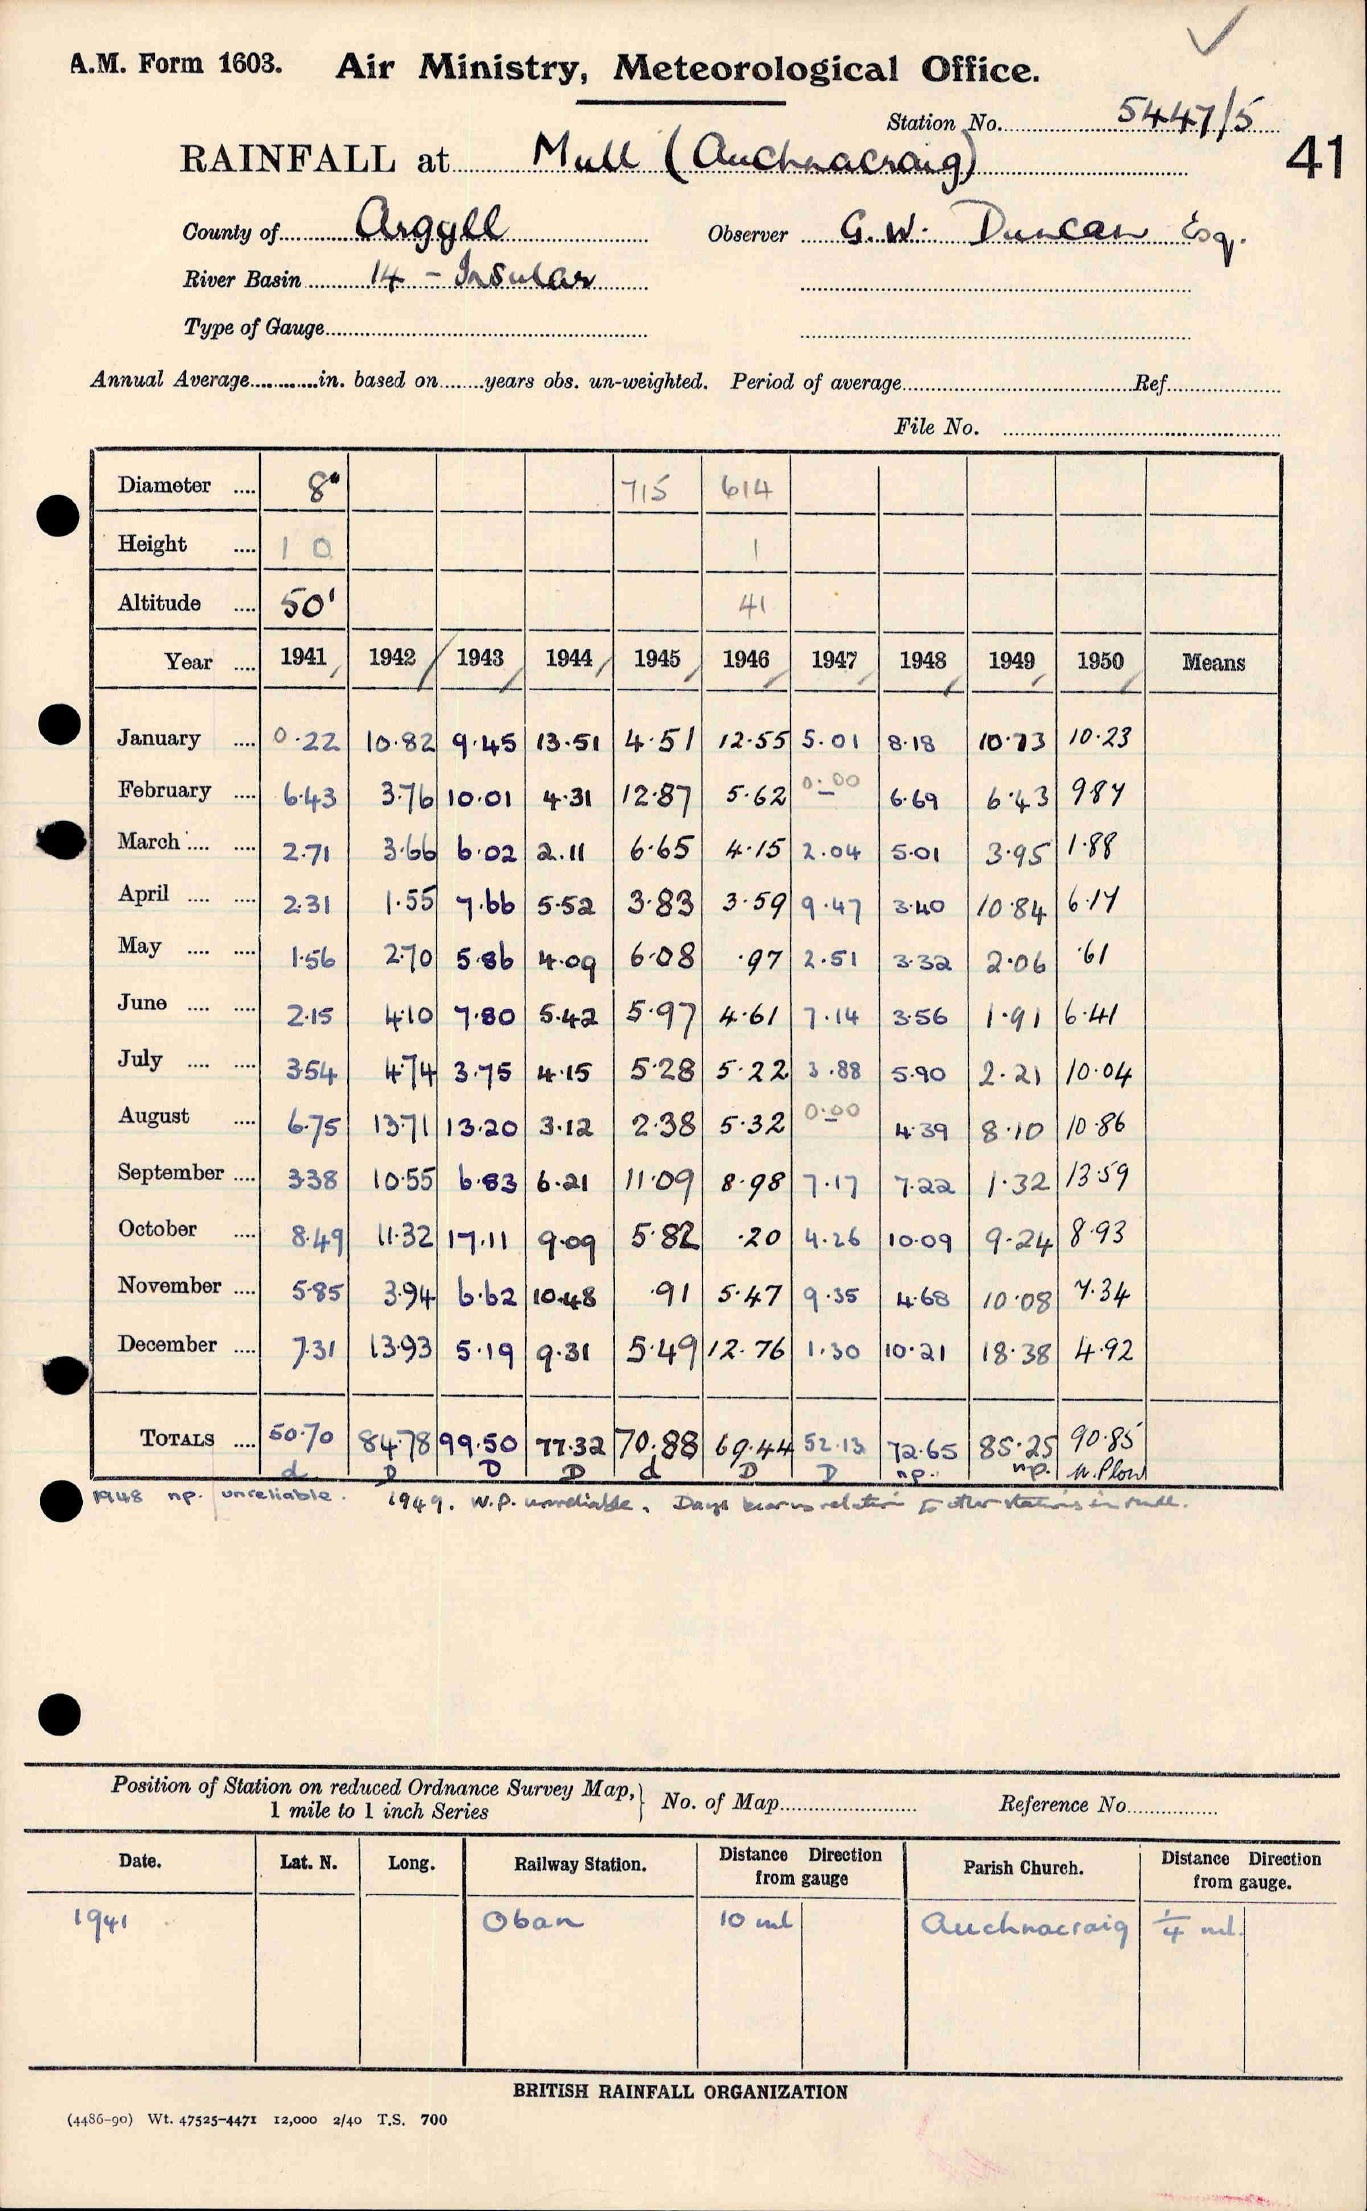 A.M. Form 1603. Air Ministry, Meteorological Office.
Station No. 5447/5
RAINFALL at Mull (Auchnacraig)
41
County of Argyll Observer G. W. Duncan Esq.
River Basin 14 - Insular
Type of Gauge
Annual Average in. based on years obs. un-weighted. Period of average Ref
File No.
Diameter 8" 715 614
Height 1 0 1
Altitude 50' 41
Year 1941 1942 1943 1944 1945 1946 1947 1948 1949 1950 Means
January 0.22 10.82 9.45 13.51 4.51 12.55 5.01 8.18 10.73 10.23
February 6.43 3.76 10.01 4.31 12.87 5.62 0.00 6.69 6.43 9.87
March 2.71 3.66 6.02 2.11 6.65 4.15 2.04 5.01 3.95 1.88
April 2.31 1.55 7.66 5.52 3.83 3.59 9.47 3.40 10.84 6.17
May 1.56 2.70 5.86 4.09 6.08 .97 2.51 3.32 2.06 .61
June 2.15 4.10 7.80 5.42 5.97 4.61 7.14 3.56 1.91 6.41
July 3.54 4.74 3.75 4.15 5.28 5.22 3.88 5.90 2.21 10.04
August 6.75 13.71 13.20 3.12 2.38 5.32 0.00 4.39 8.10 10.86
September 3.38 10.55 6.83 6.21 11.09 8.98 7.17 7.22 1.32 13.59
October 8.49 11.32 17.11 9.09 5.82 .20 4.26 10.09 9.24 8.93
November 5.85 3.94 6.62 10.48 .91 5.47 9.35 4.68 10.08 7.34
December 7.31 13.93 5.19 9.31 5.49 12.76 1.30 10.21 18.38 4.92
TOTALS 50.70 84.78 99.50 77.32 70.88 69.44 52.13 72.65 85.25 90.85
d D D D d D D np. np. n.P.
1948 np. unreliable. 1949. N.P. unreliable. Days bear no relation to other stations in Mull.
Position of Station on reduced Ordnance Survey Map, } No. of Map Reference No.
1 mile to 1 inch Series
Date. Lat. N. Long. Railway Station. Distance Direction from gauge Parish Church. Distance Direction from gauge.
1941 Oban 10 ml Auchnacraig 1/4 ml.
BRITISH RAINFALL ORGANIZATION
(4486-90) Wt. 47525-4471 12,000 2/40 T.S. 700